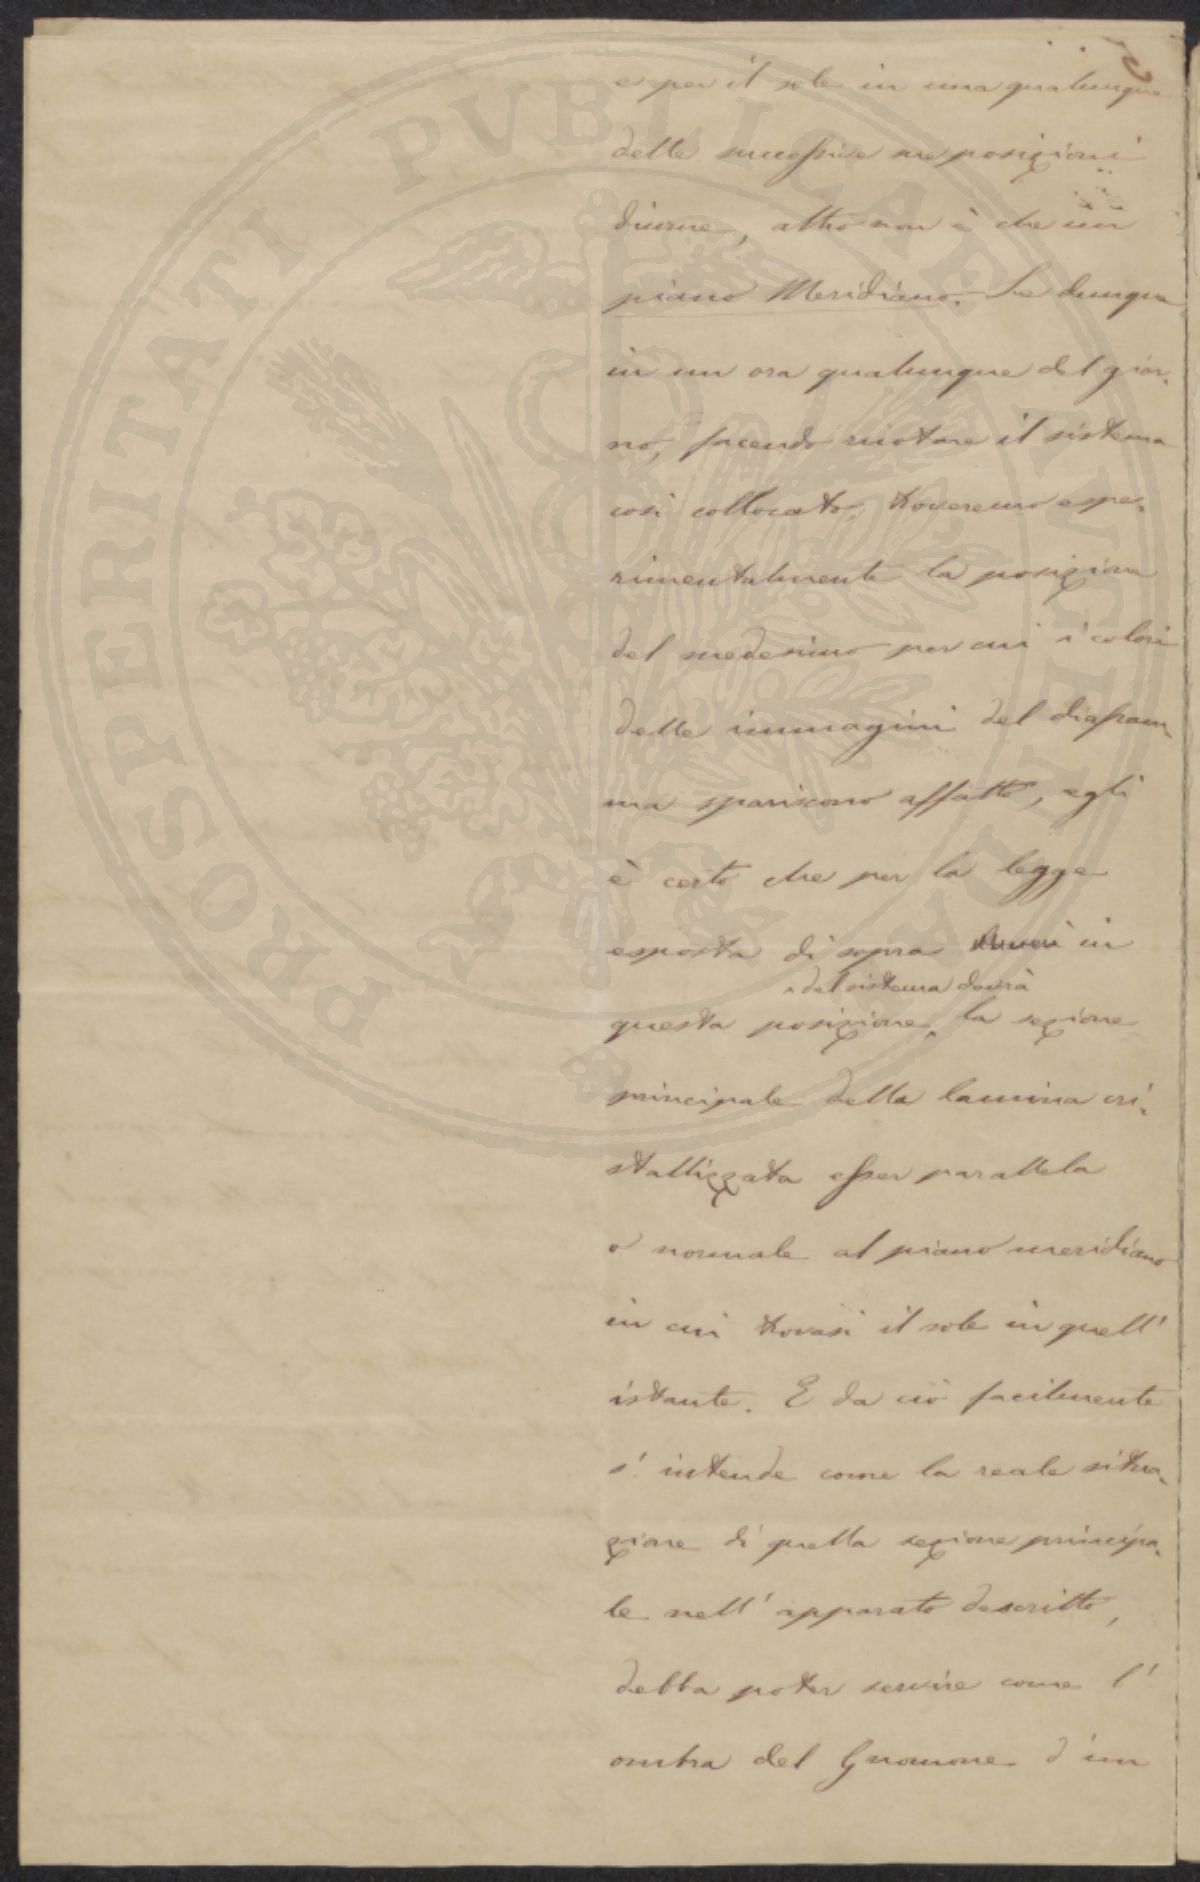 e per il sole in una qualunque
delle successive sue posizioni
diurne, altro non è che un
piano Meridiano. Se dunque
in un ora qualunque del gior-
no, facendo ruotare il sistema
così collocato, troveremo espe-
rimentalmente la posizione
del medesimo per cui i colori
delle immagini del diafram-
ma spariscono affatto, egli
è certo che per la legge
esposta di sopra in
del sistema dovrà
questa posizione la sezione
principale della lamina cri-
stallizzata esser parallela
o normale al piano meridiano
in cui trovasi il sole in quell'
istante. E da ciò facilmente
s'intende come la reale situa-
zione di quella sezione principa-
le nell'apparato descritto,
debba poter servire come l'
ombra del Gnomone d'un
PROSPERITATI PVBLICAE AVGENDAE